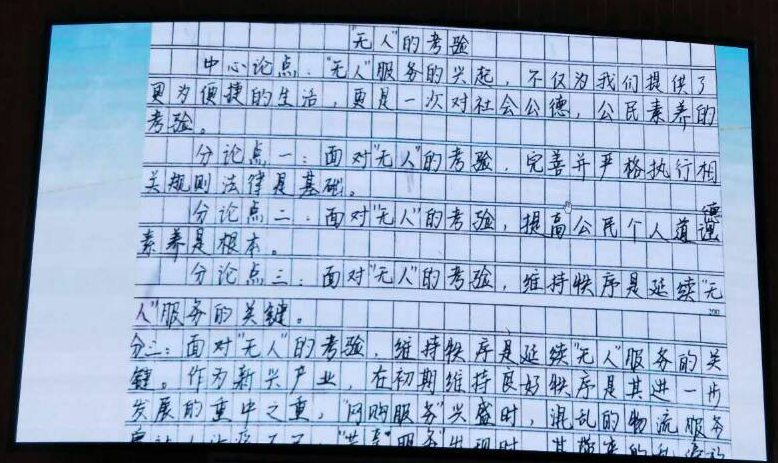 "无人"的考验
中心论点："无人"服务的兴起，不仅为我们提供了
更为便捷的生活，更是一次对社会公德，公民素养的
考验。
分论点一：面对"无人"的考验，完善并严格执行相
关规则法律是基础。
分论点二：面对"无人"的考验，提高公民个人道德
素养是根本。
分论点三：面对"无人"的考验，维持秩序是延续"无
人"服务的关键。
200
分三：面对"无人"的考验，维持秩序是延续"无人"服务的关
键。作为新兴产业，在初期维持良好秩序是其进一步
发展的重中之重，"网购服务"兴盛时，混乱的物流服务
"共享"服务出现时，其